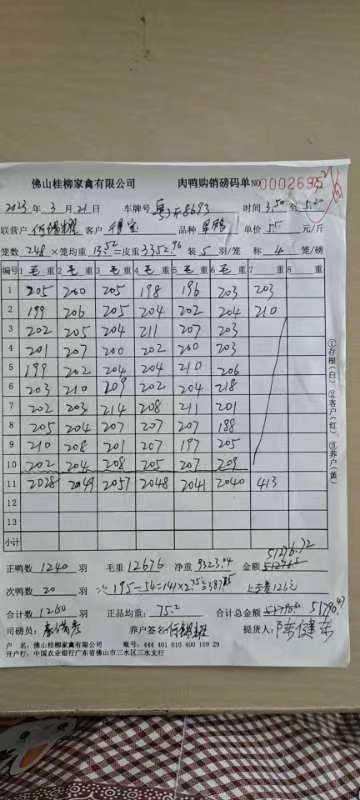 佛山桂柳家禽有限公司 肉鸭购销磅码单 NO 0002695
2023年3月21日 车牌号 时间 3.50
联营户 客户 品种 单价 5.5 元/斤
笼数 248 ×笼均重 13.52 =皮重 3352.96 装 5 羽/笼 称 4 笼/磅
编号 1 毛重 2 毛重 3 毛重 4 毛重 5 毛重 6 毛重 7 重 8 重
1 205 200 205 198 196 203 203
2 199 206 205 204 202 204 210
3 202 205 204 211 207 203
4 201 207 200 202 200 203
5 199 202 204 204 210 206
6 203 210 209 202 204 218
7 202 203 214 208 211 201
8 205 204 207 207 207 188
9 210 208 201 207 197 205
10 202 204 208 205 207 209
11 2028 2049 2057 2048 2041 2040 413
12
13
小计
①存根(白) ②客户(红) ③养户(黄)
正鸭数 1240 羽 毛重 12676 净重 9323.04 金额 51276.72
次鸭数 20 羽 195-54=141×2.75=387.75
合计数 1260 羽 正品均重: 75.2 合计总金额
司磅员: 养户签名: 提货人:
户 名: 佛山桂柳家禽有限公司 账号: 444 401 010 400 109 29
开户行: 中国农业银行广东省佛山市三水区三水支行